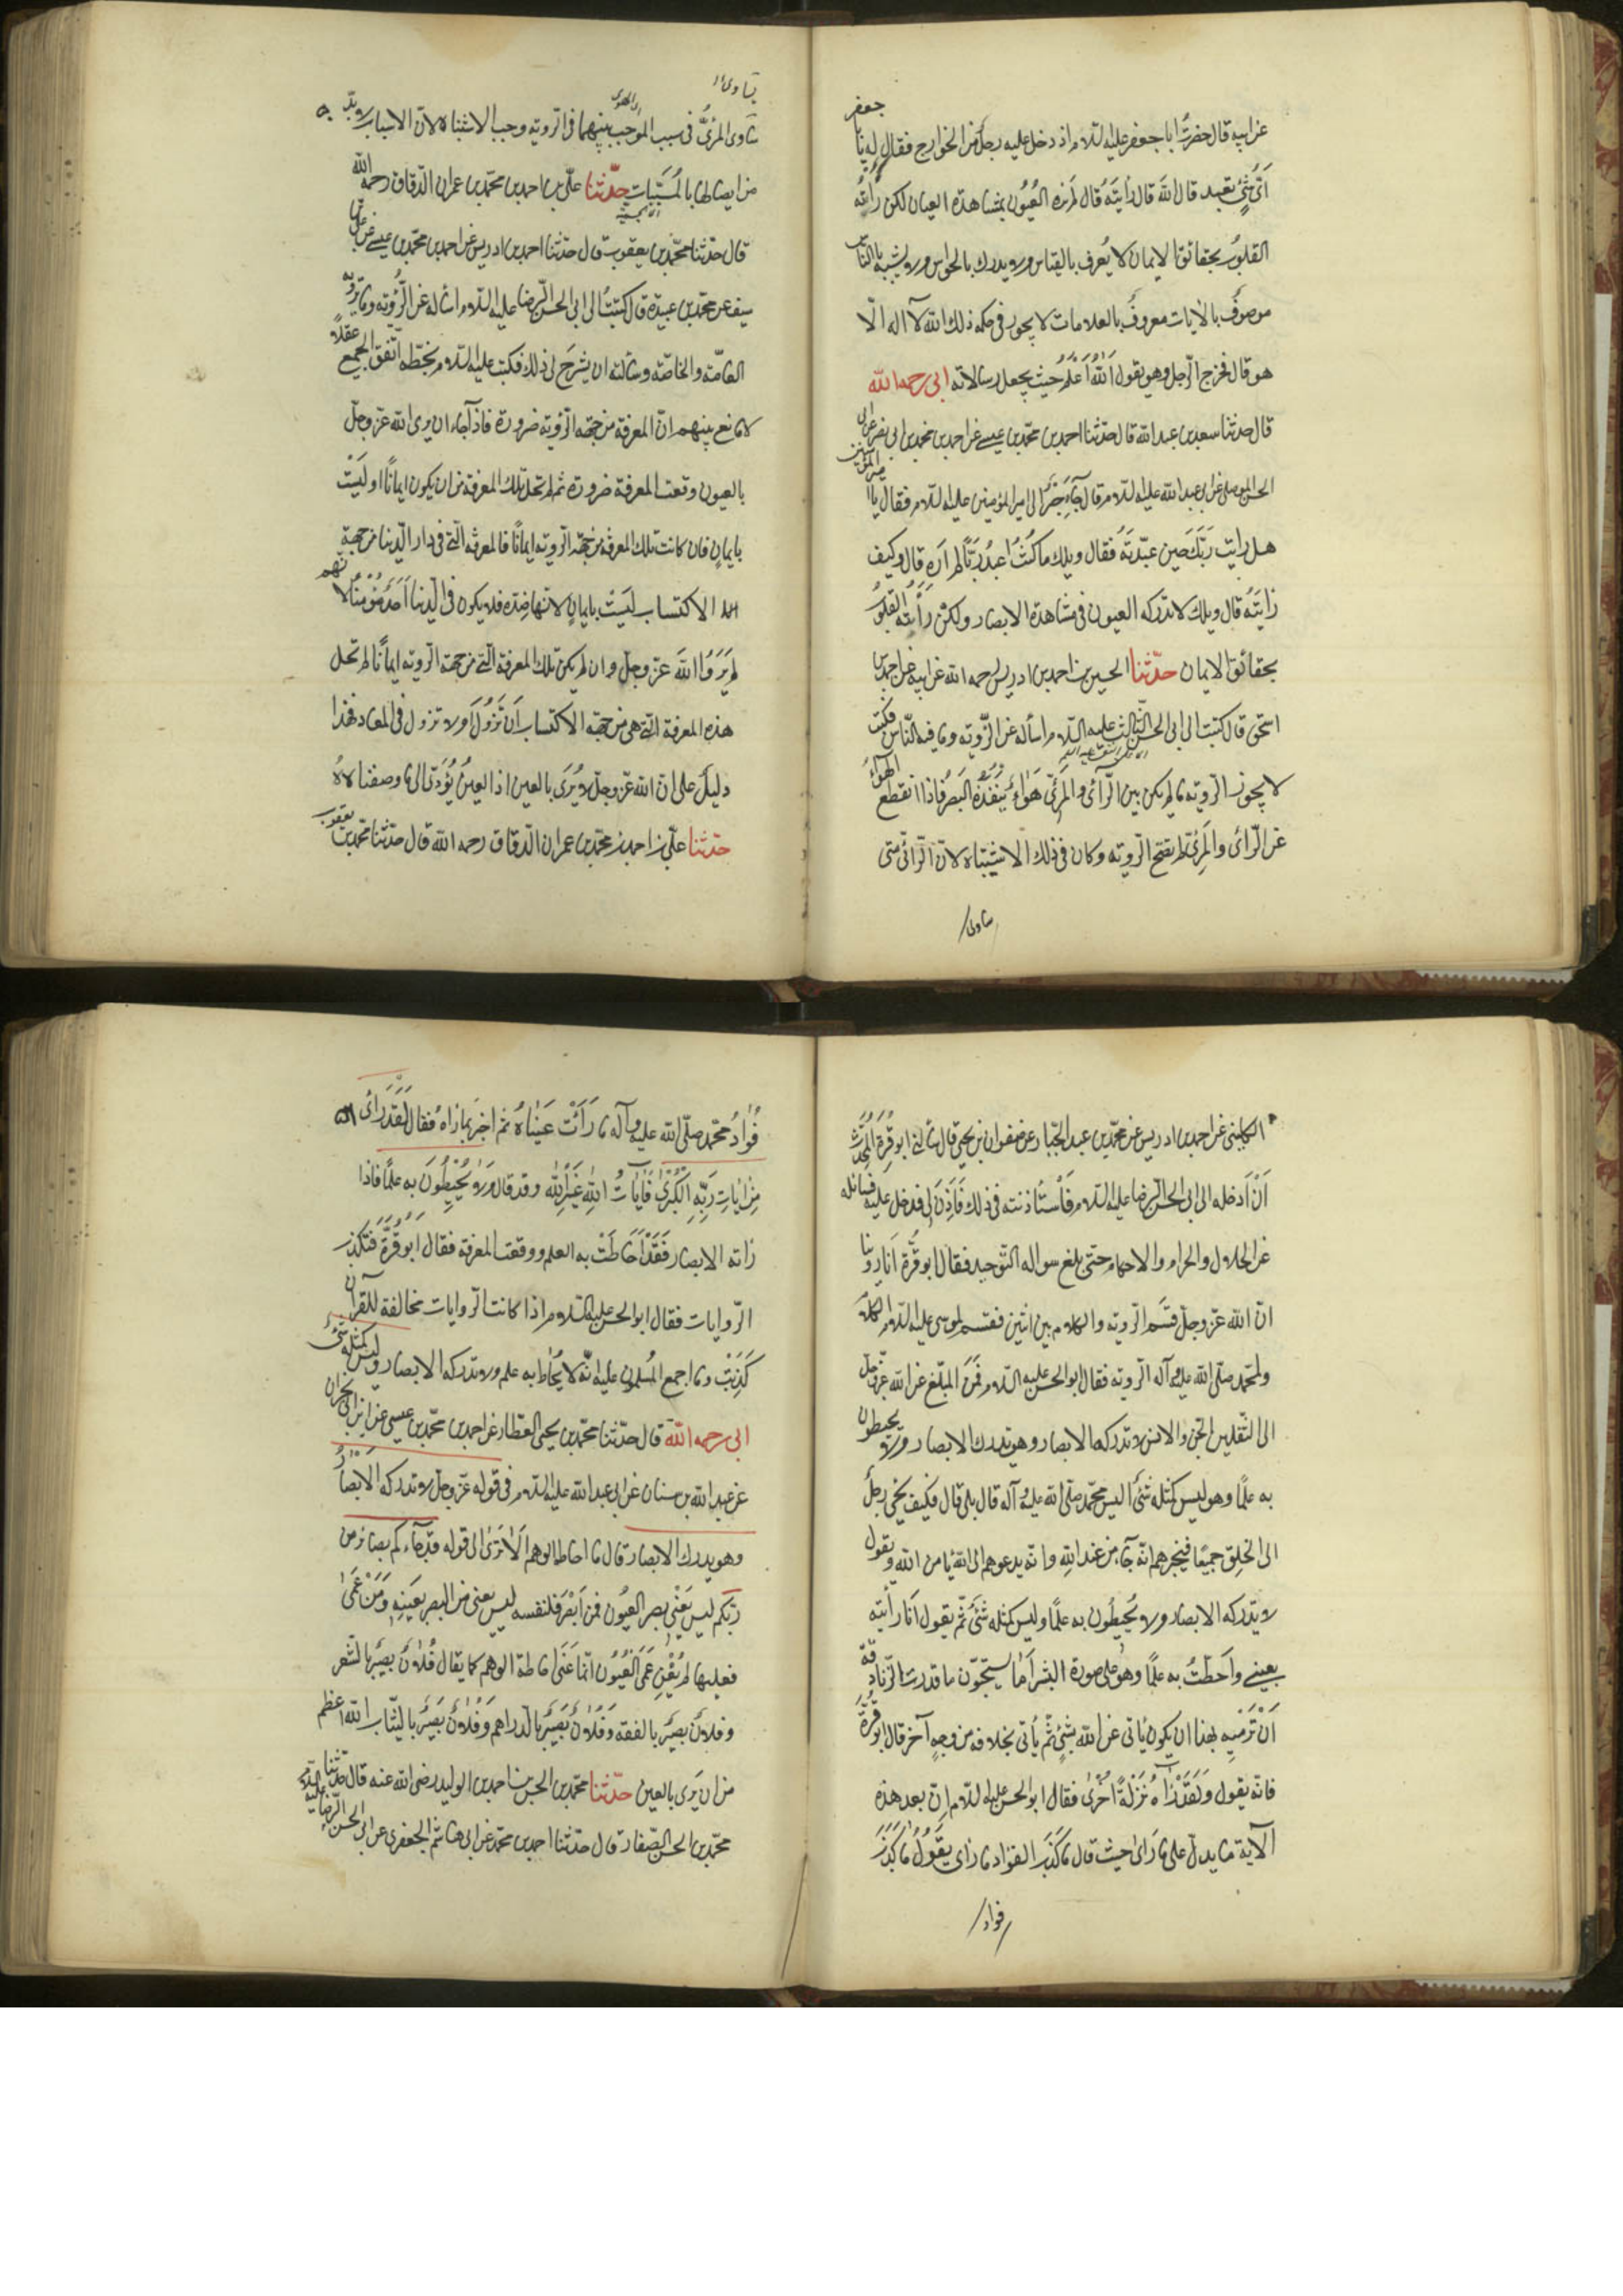 عن ابيه قال حضرت ابا جعفر عليه السلام اذ دخل عليه رجل من الخوارج فقال له يا ابا
جعفر
اَيَّ شَيْءٍ تعبد قال الله قال رَاَيتَه قال لم تره العُيُون بمشاهدة العيان لكن رَأته
القلوبُ بحقائق الايمان لا يُعرف بالقياس ولا يدرك بالحواس ولا يشبه بالناس
موصوفٌ بالايات معروفٌ بالعلامات لا يجور فى حكمه ذلك الله لا اله الّا
هو قال فخرج الرّجل وهو يقول اللهُ اَعْلَمُ حيث يجعل رسالاته ابى رحمه الله
قال حدثنا سعد بن عبد الله قال حدّثنا احمد بن محمّد بن عيسى عن احمد بن محمد بن ابى نصر عن ابى
الحسن الموصلى عن ابى عبد الله عليه السلام قال جآءَ حِبْرٌ الى امير المؤمنين عليه السلام فقال يا امير المؤمنين
هل رايت رَبَّكَ حين عبَدتَهُ فقال ويلك ما كنتُ اَعبدُ رَبًّا لم اَرَه قال وكيف
رَايتَهُ قال ويلك لا تدركه العيون فى مشاهدة الابصار ولكن رَأَته القلوبُ
بحقائق الايمان حدّثنا الحسين بن احمد بن ادريس رحمه الله عن ابيه عن احمد بن
اسحق قال كتبت الى ابى الحسن الثالث عليه السّلام اسأله عن الرّوية وما فيه النّاس فكتب
لا يجوز الرّوية ما لم يكن بين الرّآئى والمَرئىّ هَوَاءٌ يَنفُذُه البَصَرُ فاذا انقطع الهوآءُ
عن الرّائى والمرئىّ لم يصحّ الروية وكان فى ذلك الاشتباه لانّ الرّائى متى
ساوى
ساوى المرئىَّ فى سبب الموجب بينهما فى الروية وجب الاشتباه لانّ الاسباب لا بدّ
من اتصالها بالمُسَبَّباتِ حدّثنا علّى بن احمد بن محمّد بن عمران الدّقاق رحمه الله
قال حدّثنا محمّد بن يعقوب قال حدّثنا احمد بن ادريس عن احمد بن محمّد بن عيسى عن على بن
سيف عن محمّد بن عبيدة قال كتبتُ الى ابى الحسن الرّضا عليه السّلام اسأله عن الرّؤية وما ترويه
العامّة والخاصّة وسألته ان يشرَح لى ذلك فكتب عليه السّلام بخطّه اتّفق الجميع
لا تمانع بينهم انّ المعرفة من جهة الرّؤية ضرورة فاذا جآء ان يرى الله عزّ وجلّ
بالعيون وقعت المعرفة ضرورة ثم لم تخل تلك المعرفة من ان يكون ايمانًا او ليست
بايمانٍ فان كانت تلك المعرفة من جهة الروية ايمانًا فالمعرفة الّتى فى دار الدّنيا من جهة
الاكتساب ليسَتْ بايمانٍ لانّها ضِدّه فلا يكون فى الدّنيا اَحَدٌ مُؤْمِنًا لانّهم
لم يَرَوُا اللهَ عزّ وجلّ وان لم يكن تلك المعرفة الّتى من جهة الروية ايمانًا لم تخل
هذه المعرفة الّتى هى من جهة الاكتساب اَن تَزُولَ اَو لا تزول فى المعاد فهذا
دليلٌ على انّ الله عزّ وجلّ لا يُرَى بالعين اذ العينُ يُؤَدّى الى ما وصفناه
حدّثنا علّى بن احمد بن محمّد بن عمران الدّقاق رحمه الله قال حدّثنا محمّد بن يعقوب
الكلينى عن احمد بن ادريس عن محمّد بن عبد الجبّار عن صفوان بن يحيى قال سألنى ابو قرة المُحَدِّث
اَنْ اَدخله الى ابى الحسن الرضا عليه السّلام فَاْستأذنته فى ذلك فَاَذِنَ لى فدخل عليه فسائله
عن الحلال والحرام والاحكام حتى بلغ سواله التوحيد فقال ابو قُرَّة اِنّا رُوّينا
انّ الله عزّ وجلّ قَسَم الرّوية والكلام بين اثنين فقسم لموسى عليه السّلام الكلام
ولمحمد صلّى الله عليه وآله الروية فقال ابو الحسن عليه السلام فَمَن المبلّغ عن الله عزّ وجلّ
الى الثّقلين الجنّ والانس لا تدركه الابصار وهو يدرك الابصار ولا يحيطون
به علمًا وهو ليس كمثله شئ اليس محمّد صلّى الله عليه وآله قال بلى قال فكيف يجئ رجل
الى الخلق جميعًا فيخبرهم انّه جآء من عند اللهِ وانّه يدعوهم الى الله بامر الله ويقول
لا تدركه الابصار ولا يُحيطُون به علمًا وليس كمثله شئٌ ثمّ يقول انا رأيته
بعينى واَحَطتُ به علمًا وهو على صورة البَشر اَما تستحيون ما قدرت الزّنادقة
اَنْ تَرميه بهذا ان يكون يأتى عن الله بشئٍ ثمّ يأتى بخلافه من وجهٍ آخر قال ابو قُرَّةَ
فانّه يقول ولَقَد رَاٰهُ نَزلةً اُخرٰى فقال ابو الحسن عليه السّلام اِنّ بعد هذه
الآية ما يدلّ على ما رَاىٰ حيث قال ما كَذَبَ الفؤاد ما راى يقُولُ ما كَذَبَ
فواد
فُؤادُ محمّدٍ صلّى الله عليه وآله ما رَأَتْ عَيْنَاهُ ثم اخبَرَ بما رَاه فقال لَقَد رَائ
مِن اٰيَاتِ رَبِّهِ الكُبْرٰى فَاٰيَاتُ اللهِ غَيْرُ اللهِ وقد قال ولا يُحْيِطُونَ به علمًا فاذا
رَاته الابصار فَقَدْ اَحَاطَتْ به العلم ووقعت المعرفة فقال ابو قُرَّةَ فتكذب
الرّوايات فقال ابو الحسن عليه السّلام اذا كانت الرّوايات مخالفة للقرآن
كَذَّبْتُ وما اجمع المُسلمون عليه انّه لا يُحَاط به علم ولا تدركه الابصار وليس كمثله شئ
ابى رحمه الله قال حدّثنا محمّد بن يحيى العطّار عن احمد بن محمّد بن عيسى عن ابن ابى نجران
عن عبد الله بن سنان عن ابى عبد الله عليه السّلام فى قوله عزّ وجلّ لا تدركه الابصارُ
وهو يدرك الابصار قال احاطة الوهم اَلَا تَرَىٰ الى قوله قد جآءَكم بصائر من
ربّكم ليس يَعْنِى بصر العُيُون فمن اَبصَر فلنفسه ليس يعنى من البصر بعَينِه وَمَنْ عَمِىَ
فعليها لم يُعْنِ عَمَى العُيُون انّما عَنَى احاطة الوهم كما يقال فُلانٌ بصيرٌ بالشعر
وفلانٌ بصيرٌ بالفقه وَفُلانٌ بَصيرٌ بالدراهم وَفُلانٌ بَصيرٌ بالثياب الله اعظم
من ان يُرَى بالعين حدّثنا محمّد بن الحسن بن احمد بن الوليد رضى الله عنه قال حدّثنا
محمّد بن الحسن الصّفار قال حدّثنا احمد بن محمّد عن ابى هاشم الجعفرى عن ابى الحسن الرّضا عليه السلام